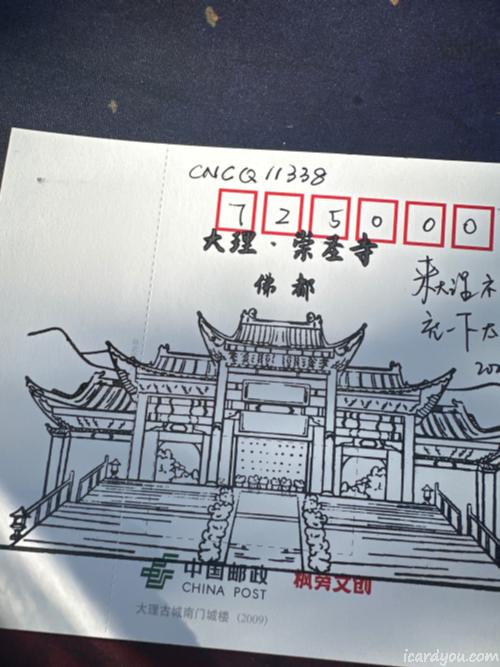 CNCQ11338
725000
大理·崇圣寺
佛都
来大理
玩一下
202
中国邮政
CHINA POST
枫旁文创
大理古城南门城楼 (2009)
icardyou.com